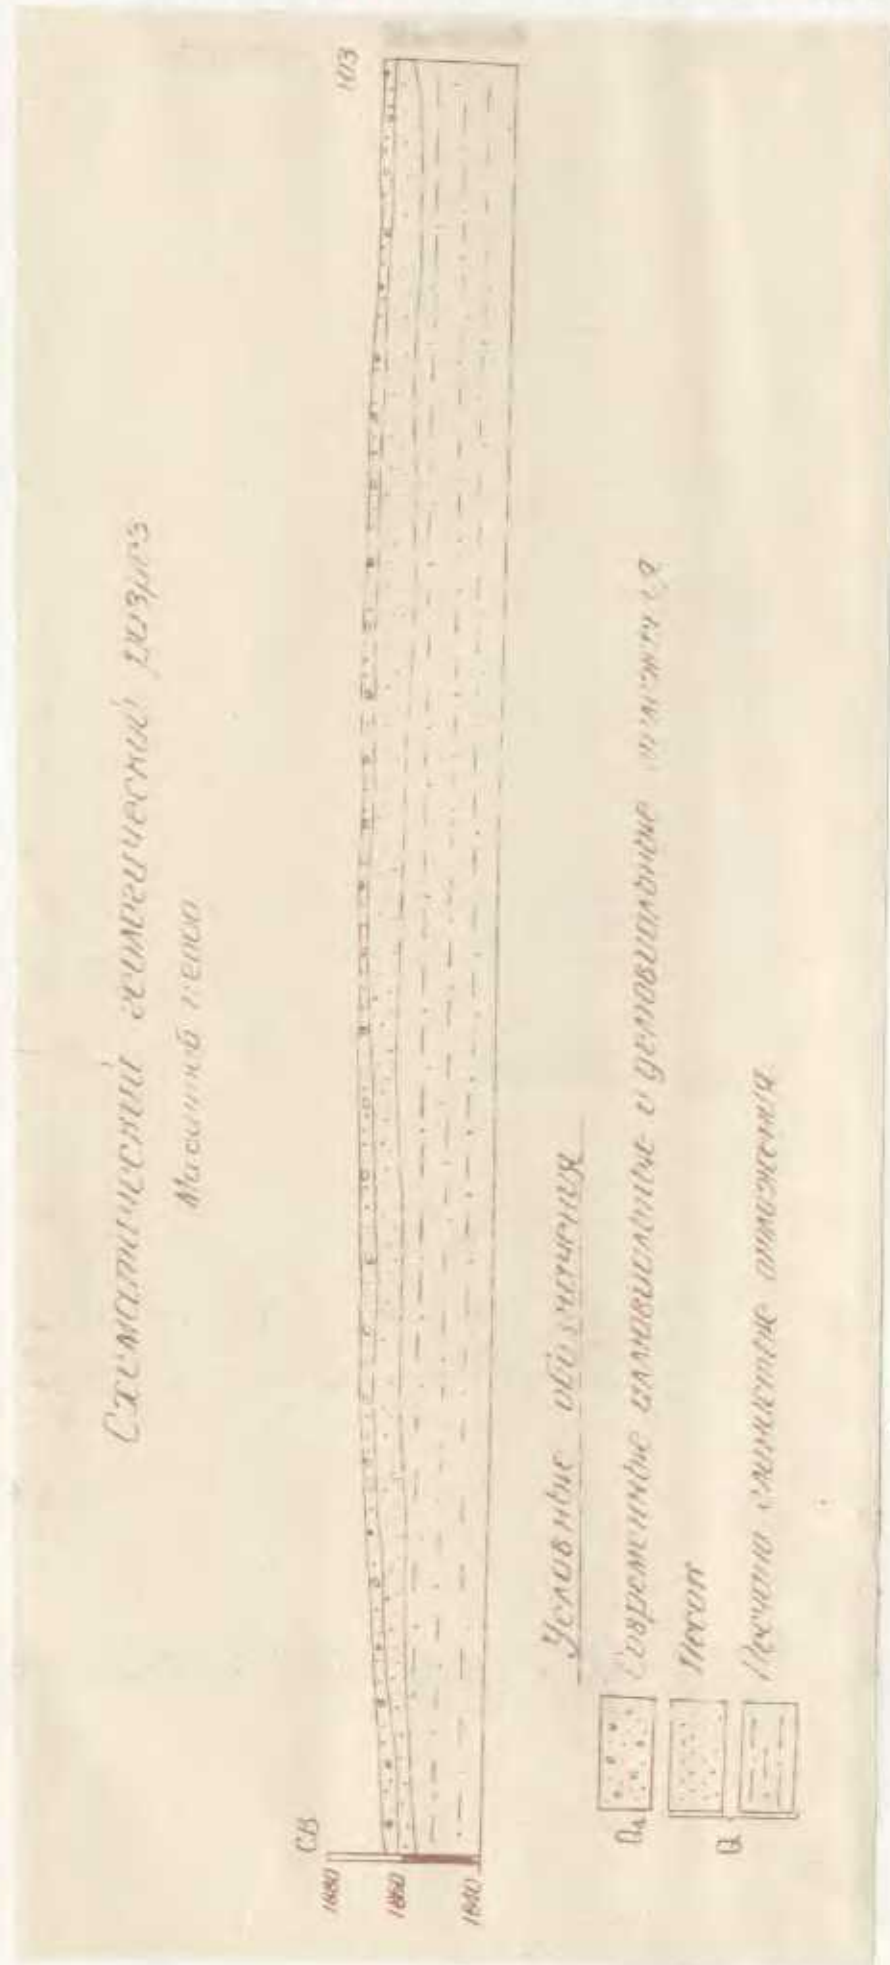 Схематический геологический разрез
Масштаб
СВ
ЮЗ
1880
1860
1840
Условные обозначения
Современные аллювиальные и делювиальные отложения
Песок
Песчано глинистые отложения
Q